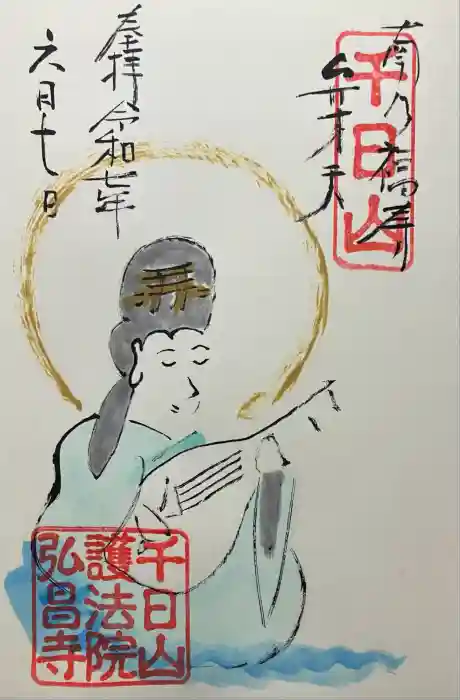 千日山
南乃福寿
弁才天
奉拝 令和七年
六月十七日
千日山
護法院
弘昌寺